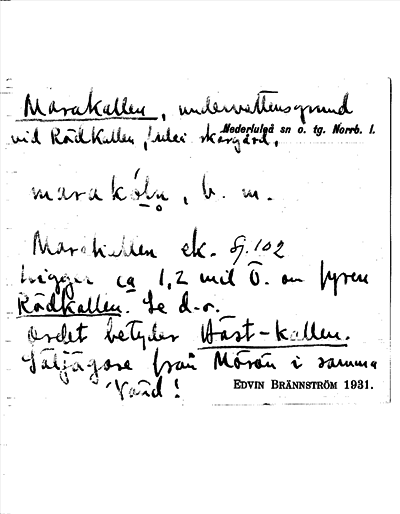 Marakallen, undervattensgrund
Nederluleå sn o. tg. Norrb. l.
vid Rödkallen, Luleå skärgård.
maraköln, b. m.
Marakallen ek. 59.102
ligger ca 1,2 mil Ö. om fyren
Rödkallen. Se d.o.
Ordet betyder Häst-kallen.
Säljägare från Mörön i samma
vård!
EDVIN BRÄNNSTRÖM 1931.